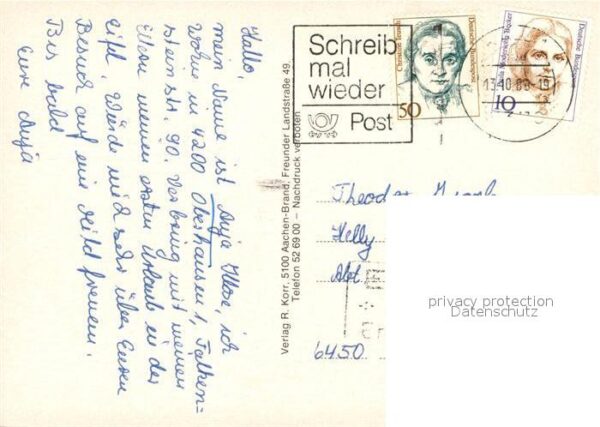 Hallo
mein Name ist Anja ich
wohne in 4200 Oberhausen 1, Falken-
steinstr. 90. Verbring mit meinen
Eltern meinen ersten Urlaub in der
Eifel. Würde mich sehr über Euren
Besuch auf ein freuen.
Bis bald
Eure Anja
Verlag R. Korr, 5100 Aachen-Brand, Freunder Landstraße 49
Telefon 52 69 00 – Nachdruck verboten
Schreib
mal
wieder
Post
Christine Teusch
Deutsche Bundespost
50
Paula Modersohn-Becker
Deutsche Bundespost
10
13.10.88-19
Theodor
Kelly
Abt
6450
privacy protection
Datenschutz